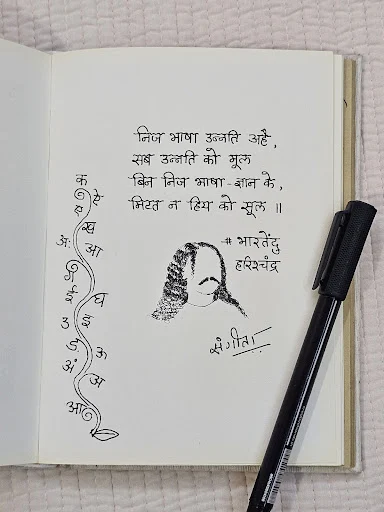 निज भाषा उन्नति अहै,
सब उन्नति को मूल
बिन निज भाषा-ज्ञान के,
मिटत न हिय को सूल ॥
# भारतेंदु
हरिश्चंद्र
संगीता
क
ऐ
ए
ख
अः
आ
घ
इ
उ
ऊ
अं
अ
आ